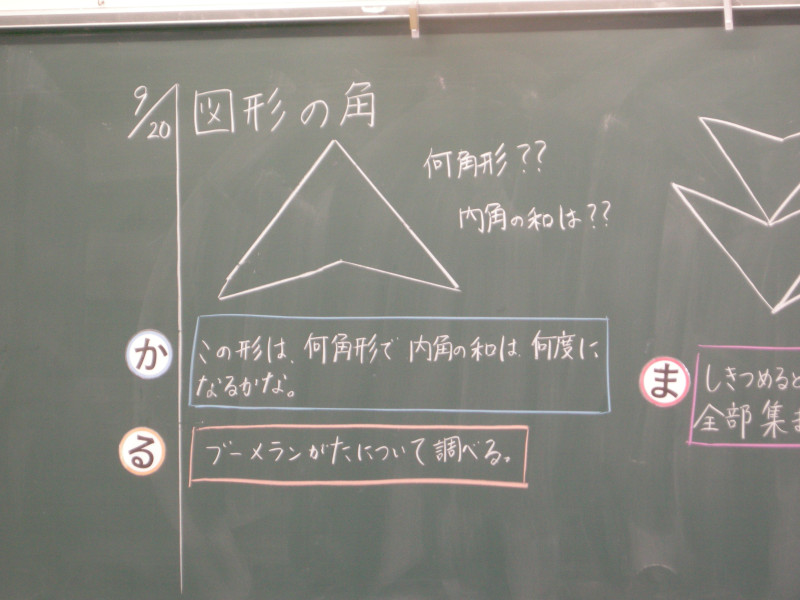 9/20
図形の角
何角形??
内角の和は??
か
この形は、何角形で内角の和は、何度に
なるかな。
る
ブーメランがたについて調べる。
ま
しきつめると
全部集ま